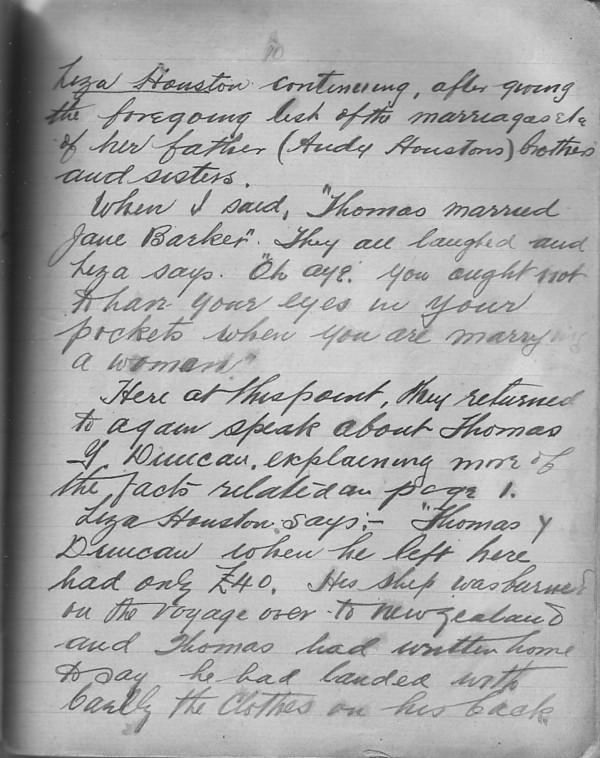 10
Liza Houston continuing, after giving
the foregoing list of the marriages etc
of her father (Andy Houstons) brothers
and sisters.
When I said, "Thomas married
Jane Barker". They all laughed and
Liza says. "Oh aye. you ought not
to have your eyes in your
pockets when you are marrying
a woman"
Here at this point, they returned
to again speak about Thomas
Y Duncan, explaining more of
the facts related on page 1.
Liza Houston, says:- "Thomas Y
Duncan when he left here
had only £40. His ship was burned
on the voyage over to New Zealand
and Thomas had written home
to say he had landed with
barely the clothes on his back